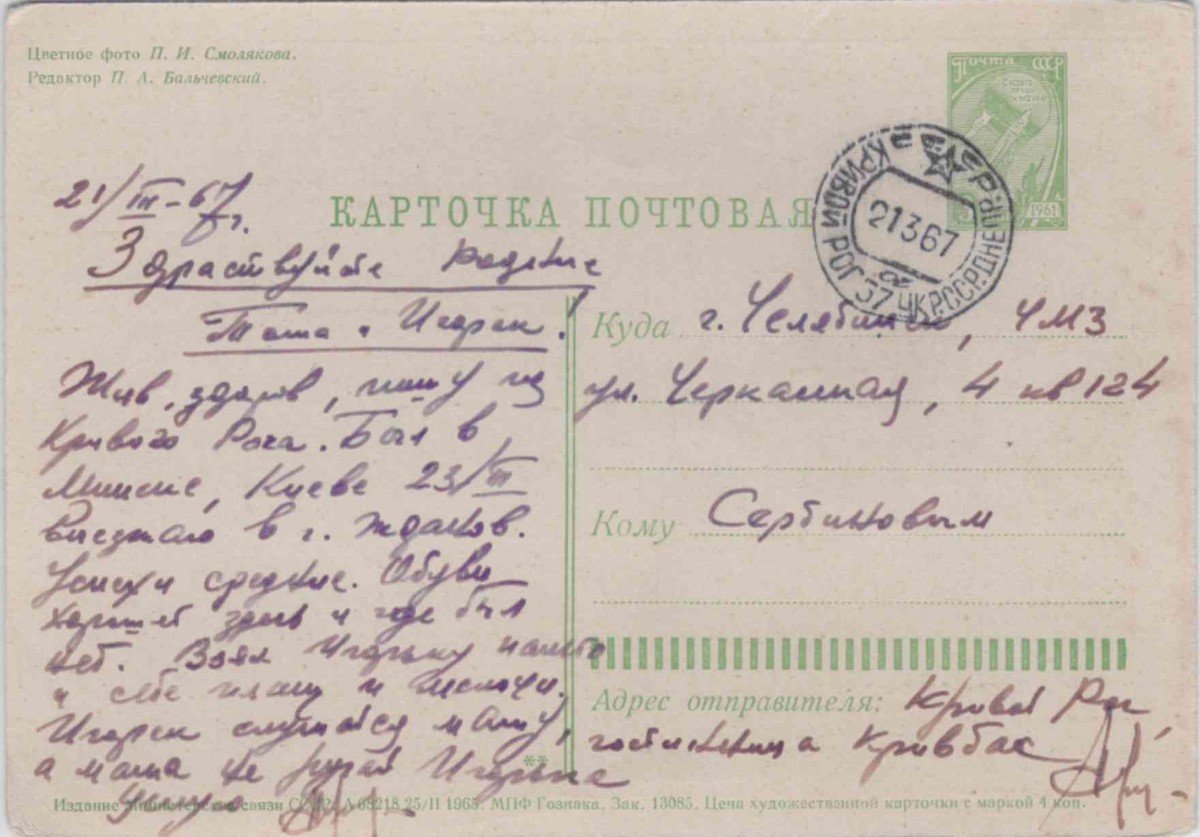 Цветное фото П. И. Смолякова.
Редактор П. А. Бальчевский.
Почта СССР
1961
КРИВОЙ РОГ 37 УКР.ССР.ДНЕПР
21367
КАРТОЧКА ПОЧТОВАЯ
21/III-67г.
Здраствуйте родные
Тома и Игорек!
Жив, здоров, пишу из
Кривого Рога. Был в
Минске, Киеве 23/III
выезжаю в г. Жданов.
Успехи средние. Обуви
хорошей здесь и где был
нет. Взял Игорьку пальто
и себе плащ и мелочи.
Игорек слушайся маму,
а мама не ругай Игорька
Целую
Куда г. Челябинск, ЧМЗ
ул. Черкасская, 4 кв 124
Кому Сербиновым
Адрес отправителя: Кривой Рог,
гостинница Кривбас
Издание Министерства связи СССР. А 08218 25/II 1965. МПФ Гознака. Зак. 13085. Цена художественной карточки с маркой 4 коп.